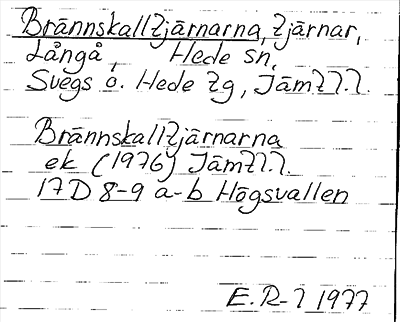 Brännskalltjärnarna, tjärnar,
Långå, Hede sn,
Svegs o. Hede tg, Jämtl.l.
Brännskalltjärnarna
ek (1976) Jämtl.l.
17D 8-9 a-b Högsvallen
E.R-l 1977